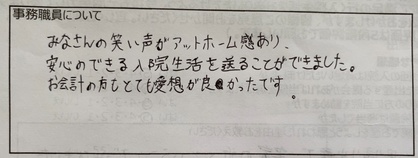 事務職員について
みなさんの笑い声がアットホーム感あり、
安心のできる入院生活を送ることができました。
お会計の方もとても愛想が良かったです。